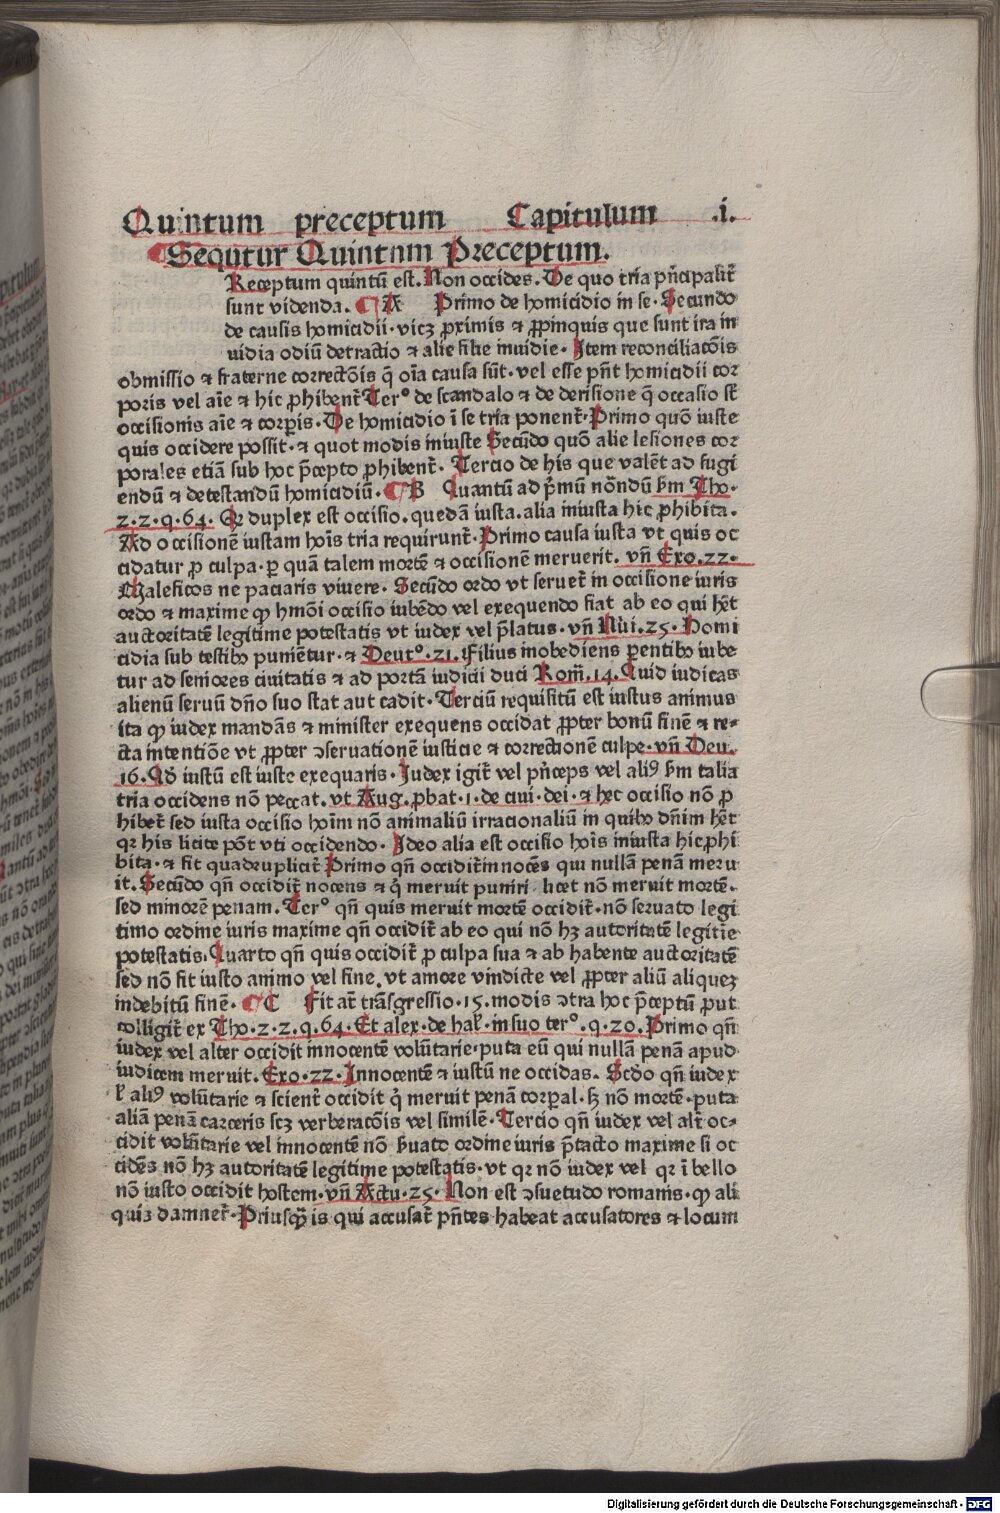 Quintum preceptum Capitulum .i.
Sequtur Quintum Preceptum.
Receptum quintū est. Non occides. De quo tria pn̄cipalit̄
sunt videnda. ¶ A Primo de homicidio in se. Secundo
de causis homicidii. vicꝫ ꝓximis ⁊ ꝓpinquis que sunt ira in
uidia odiū detractio ⁊ alie filie inuidie. Item reconciliacōis
obmissio ⁊ fraterne correctōis q̄ oīa causa sūt. vel esse pn̄t homicidii cor
poris vel aīe ⁊ hic ꝓhibent̄ Terº de scandalo ⁊ de derisione q̄ occasio st̄
occisionis aīe ⁊ corꝑis. De homicidio ī se tria ponent̄. Primo quō iuste
quis occidere possit. ⁊ quot modis iniuste Secūdo quō alie lesiones cor
porales etiā sub hoc p̄cepto ꝓhibent̄. Tercio de his que valēt ad fugi
endū ⁊ detestandū homicidiū. ¶ B Quantū ad p̄mū nōndū ẜm Tho.
2.2.q.64. Qr duplex est occisio. quedā iusta. alia iniusta hic ꝓhibita.
Ad occisionē iustam hoīs tria requirunt̄. Primo causa iusta vt quis oc
cidatur ꝓ culpa. ꝑ quā talem mortē ⁊ occisionē meruerit. vn̄ Exo.22.
Maleficos ne paciaris viuere. Secūdo ordo vt seruet̄ in occisione iuris
ordo ⁊ maxime ꝙ hmōi occisio iubēdo vel exequendo fiat ab eo qui hēt
auctoritatē legitime potestatis vt iudex vel p̄latus. vn̄ Nūi.25. Homi
cidia sub testibꝰ puniētur. ⁊ Deutº.21. Filius inobediens ꝑentibꝰ iube
tur ad seniores ciuitatis ⁊ ad portā iudicii duci Rom̄.14. Quid iudicas
alienū seruū dn̄o suo stat aut cadit. Terciū requisitū est iustus animus
ita ꝙ iudex mandās ⁊ minister exequens occidat ꝓpter bonū finē ⁊ re-
cta intentiōe vt ꝓpter ↄseruationē iusticie ⁊ correctionē culpe. vn̄ Deu.
16. Qd̄ iustū est iuste exequaris. Iudex igit̄ vel pn̄ceps vel aliꝰ ẜm talia
tria occidens nō peccat. vt Aug. ꝓbat.1. de ciui. dei. ⁊ hec occisio nō ꝓ
hibet̄ sed iusta occisio hoīm nō animaliū irracionaliū in quibꝰ dn̄im hēt
qr his licite pōt vti occidendo. Ideo alia est occisio hoīs iniusta hic ꝓhi
bita. ⁊ fit quadruplicit̄ Primo qn̄ occidit̄ innocēs qui nullā penā meru
it. Secūdo qn̄ occidit̄ nocens ⁊ q̇ meruit puniri. licet nō meruit mortē.
sed minorē penam. Terº qn̄ quis meruit mortē occidit̄. nō seruato legi
timo ordine iuris maxime qn̄ occidit̄ ab eo qui nō hꝫ autoritatē legitīe
potestatis. Quarto qn̄ quis occidit̄ ꝓ culpa sua ⁊ ab habente auctoritatē
sed nō fit iusto animo vel fine. vt amore vindicte vel ꝓpter aliū aliqueꝫ
indebitū finē. ¶ C Fit at̄ trāsgressio.15. modis ↄtra hoc p̄ceptū ꝓut
colligit̄ ex Tho.2.2.q.64. Et alex. de hal̄. in suo terº.q.20. Primo qn̄
iudex vel alter occidit innocentē volūtarie. puta eū qui nullā penā apud
iudicem meruit. Exo.22. Innocentē ⁊ iustū ne occidas. Scd̄o qn̄ iudex
l̄ aliꝰ volūtarie ⁊ scient̄ occidit q̇ meruit penā corꝑal. sꝫ nō mortē. puta
aliā penā carceris scꝫ verberacōis vel similē. Tercio qn̄ iudex vel alt̄ oc-
cidit volūtarie vel innocentē nō ẜuato ordine iuris p̄tacto maxime si oc
cidēs nō hꝫ autoritatē legitime potestatis. vt qr nō iudex vel qr ī bello
nō iusto occidit hostem. vn̄ Actu.25. Non est ↄsuetudo romanis. ꝙ ali
quiꝫ damnet̄. Priusꝙ̄ is qui accusat̄ pn̄tes habeat accusatores ⁊ locum
Digitalisierung gefördert durch die Deutsche Forschungsgemeinschaft - DFG